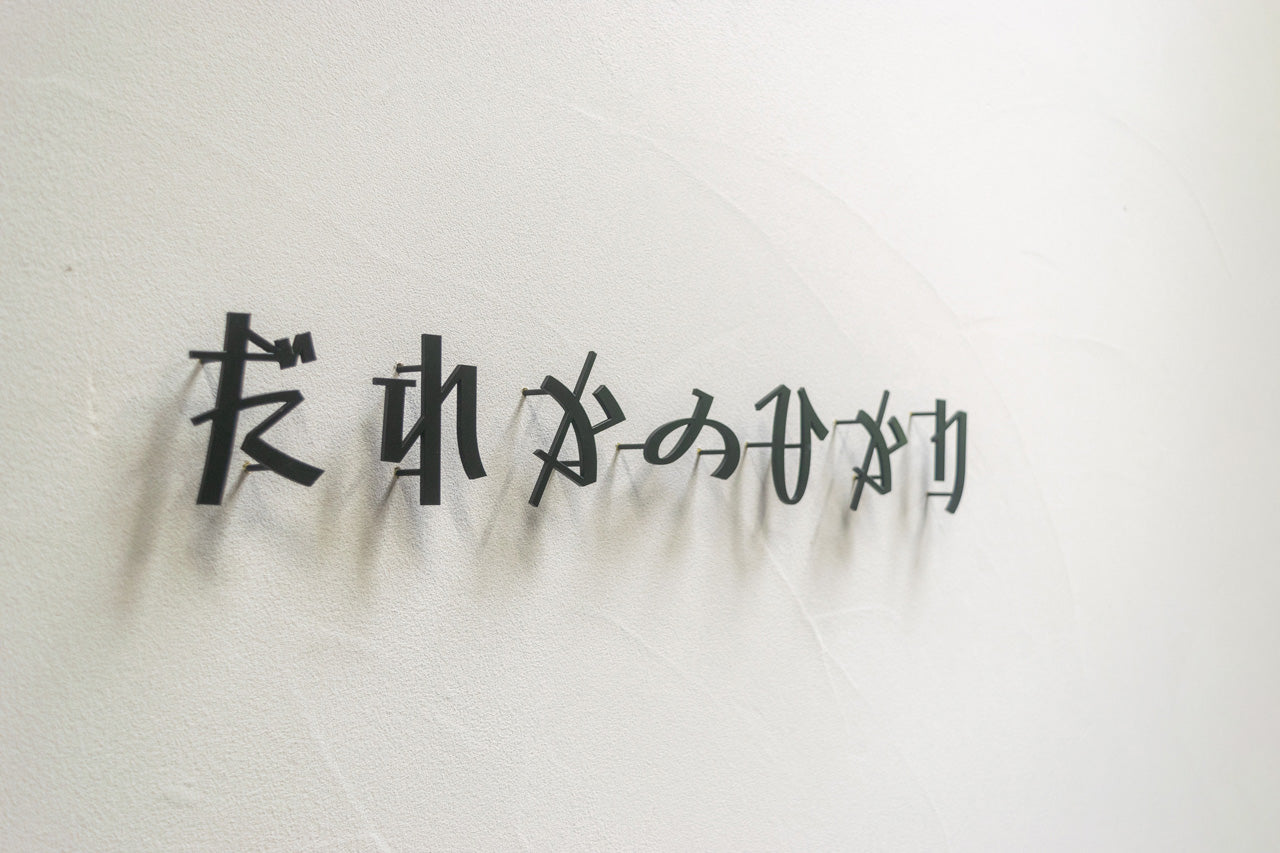 だれかのひかり